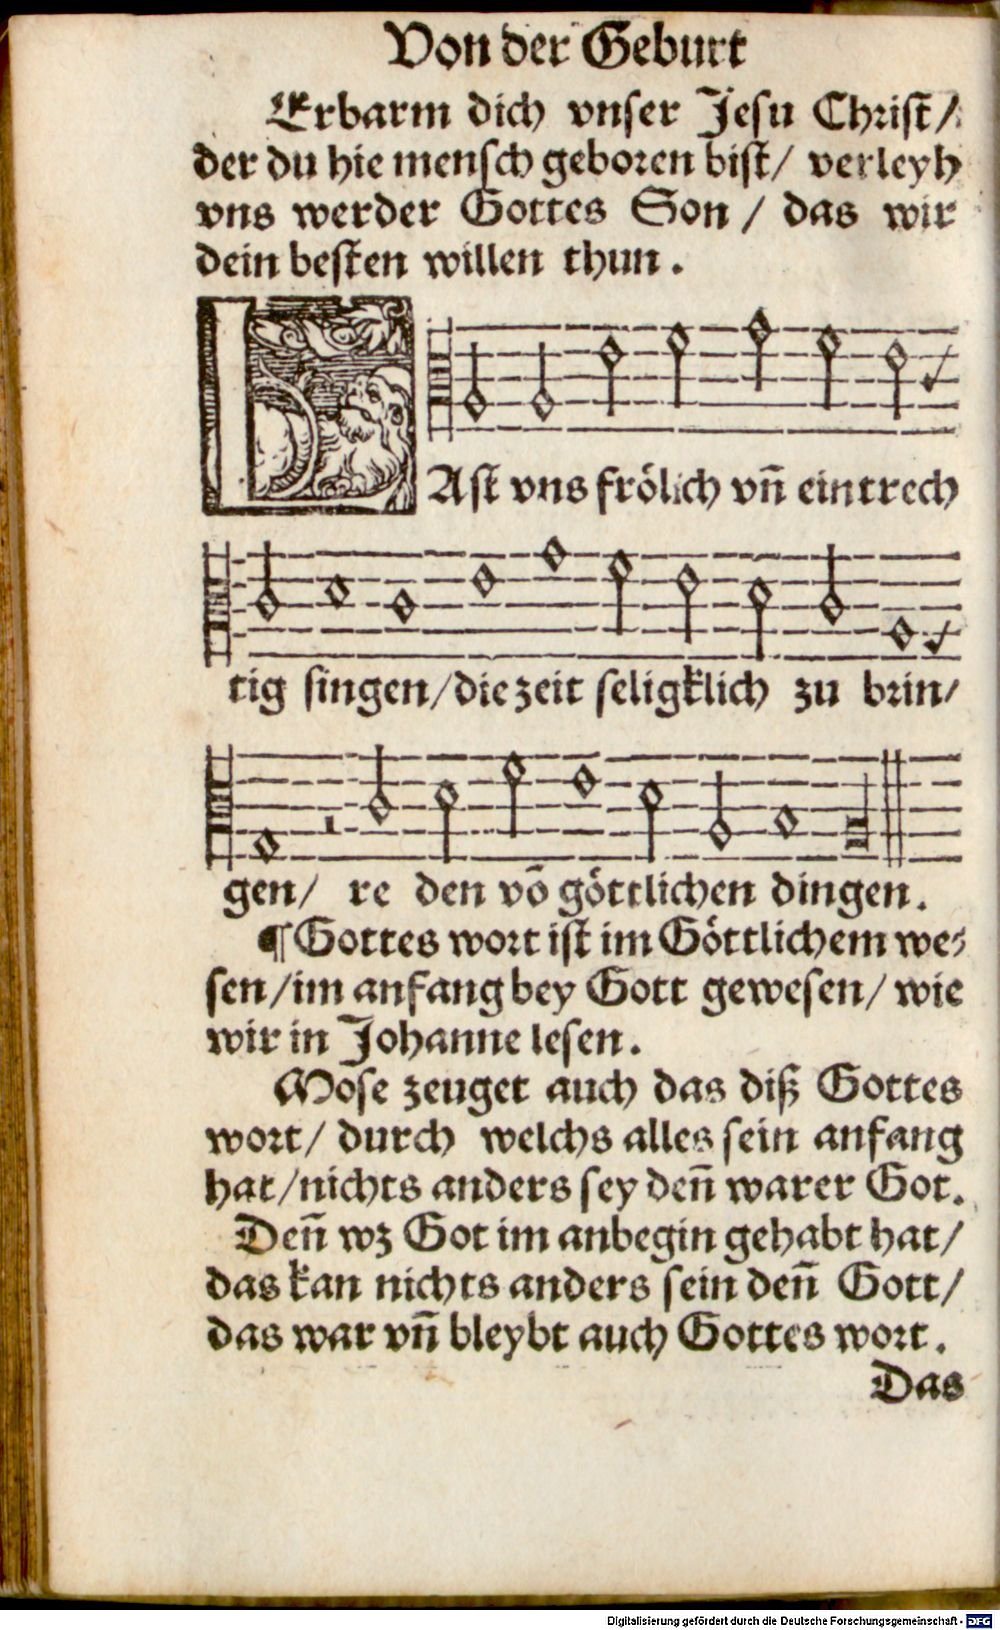 Von der Geburt
Erbarm dich vnser Jesu Christ/
der du hie mensch geboren bist/ verleyh
vns werder Gottes Son / das wir
dein besten willen thun.
LAst vns frölich vn̄ eintrech
tig singen/die zeit seligklich zu brin/
gen/ re den vō göttlichen dingen.
¶Gottes wort ist im Göttlichem we⸗
sen/im anfang bey Gott gewesen/ wie
wir in Johanne lesen.
Mose zeuget auch das diß Gottes
wort/ durch welchs alles sein anfang
hat/nichts anders sey den̄ warer Got.
Den̄ wz Got im anbegin gehabt hat/
das kan nichts anders sein den̄ Gott/
das war vn̄ bleybt auch Gottes wort.
Das
Digitalisierung gefördert durch die Deutsche Forschungsgemeinschaft - DFG